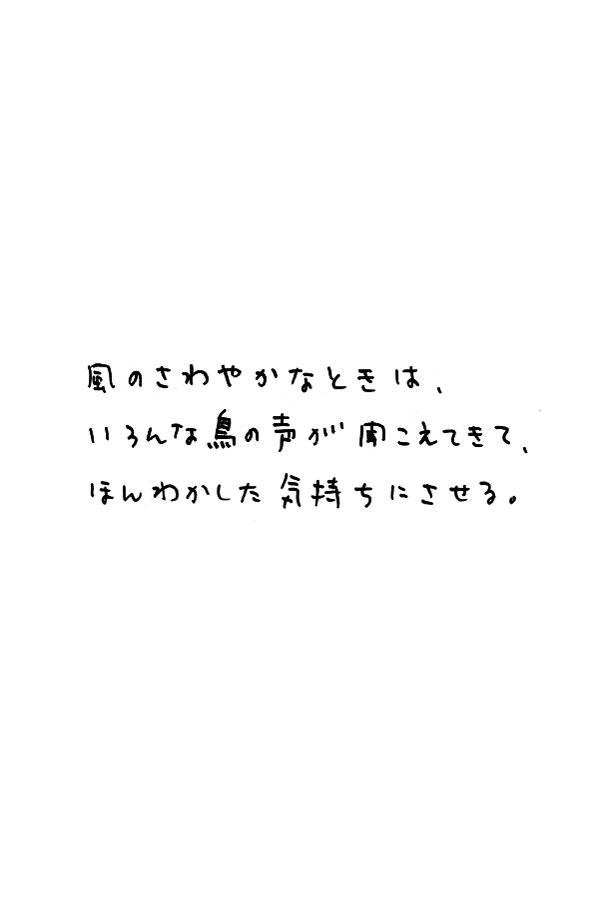 風のさわやかなときは、
いろんな鳥の声が聞こえてきて、
ほんわかした気持ちにさせる。